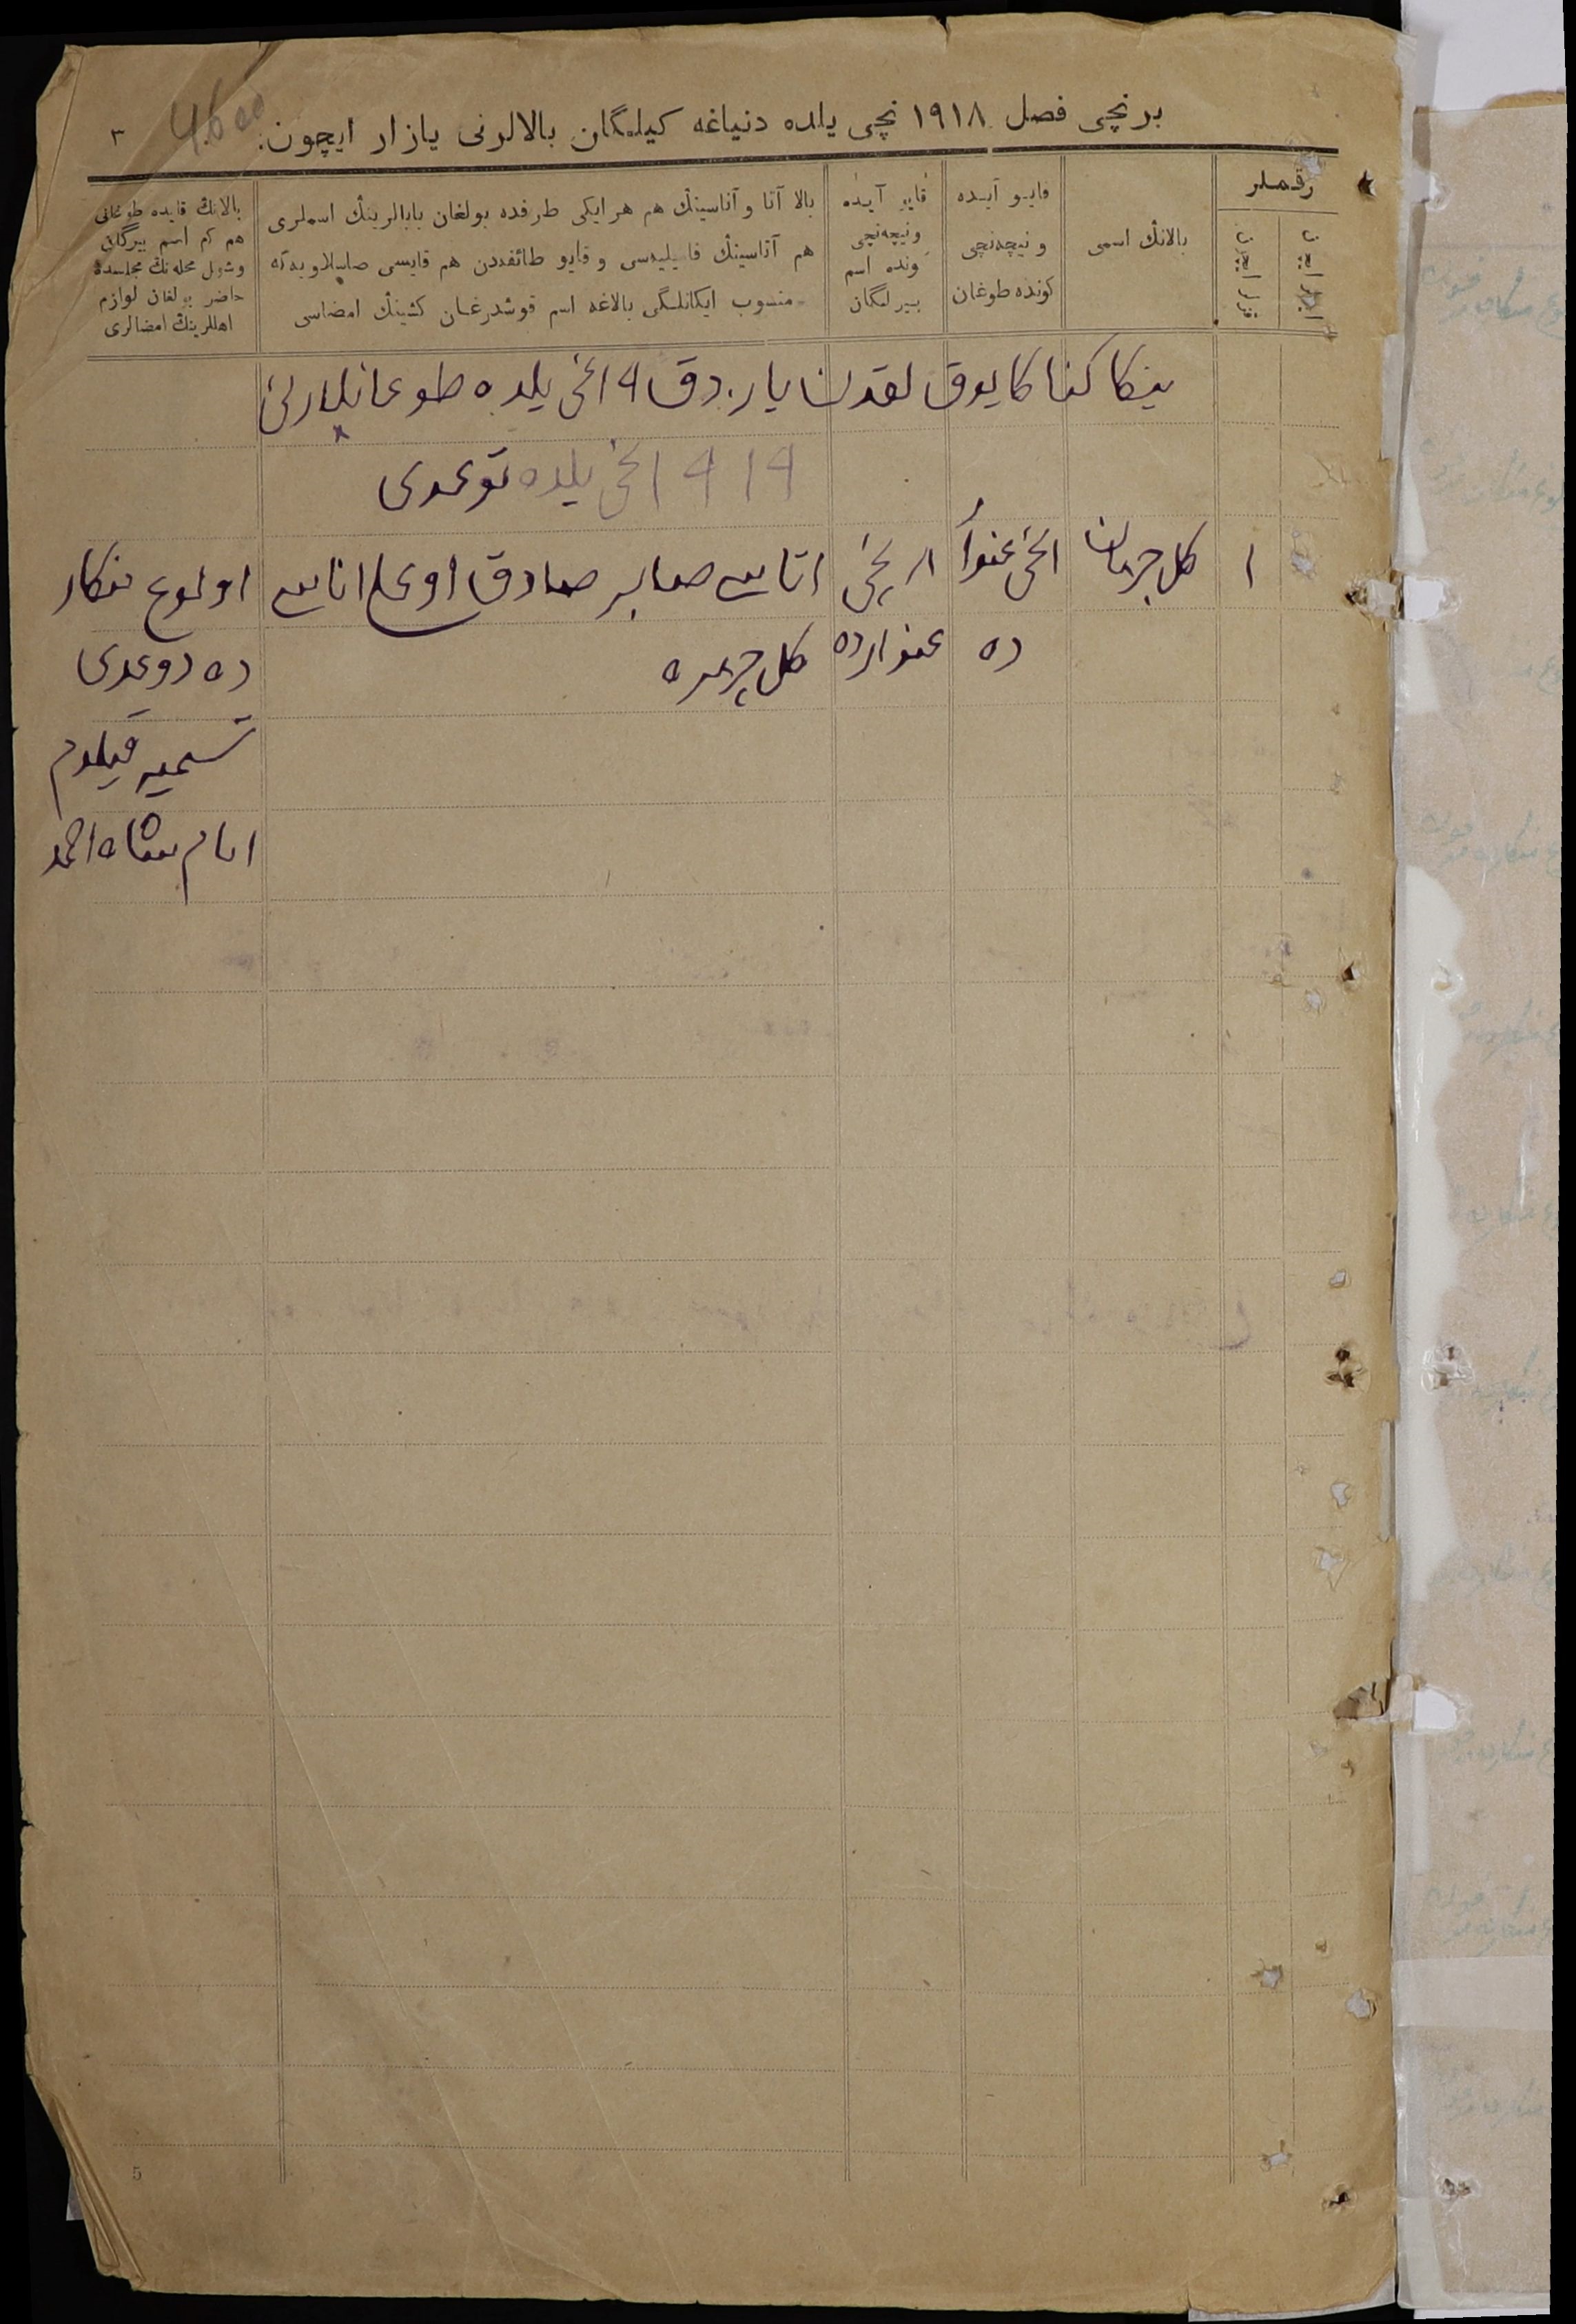 برنچی فصل ١٩١٨ نچی یلده دنیاغه کیلگان بالالرنی یازار ایچون.
٣
4600
رقملر
بالانڭ اسمی
قایو آیده
و نیچه‌نچی
کونده طوغان
قایو آیده
و نیچه‌نچی
کونده اسم
بیرلگان
بالا آتا و آناسینڭ هم هر ایکی طرفده بولغان بابالرینڭ اسملری
هم آتاسینڭ فامیلیه‌سی و قایو طائفه‌دن هم قایسی
منسوب ایکانلگی بالاغه اسم قوشدرغان کشینڭ امضاسی
بالانڭ قایده طوغانی
هم کم اسم بیرگانی
وشول محله‌نڭ مجلسده
حاضر بولغان لوازم
اهللرینڭ امضالری
کا یوق یازدق ١٩ نچی یلده طوغانلارنی
١٩١٩ نچی یلده توغدی
١
کل جهان
ا نچی غنوا
ده
ا نچی
غنوارده
اتاسی صابر صادق اوغلی اناسی
کل چهره
اولوغ منکار
ده دوغدی
تسمیه قیلدم
امام شاه احمد
5